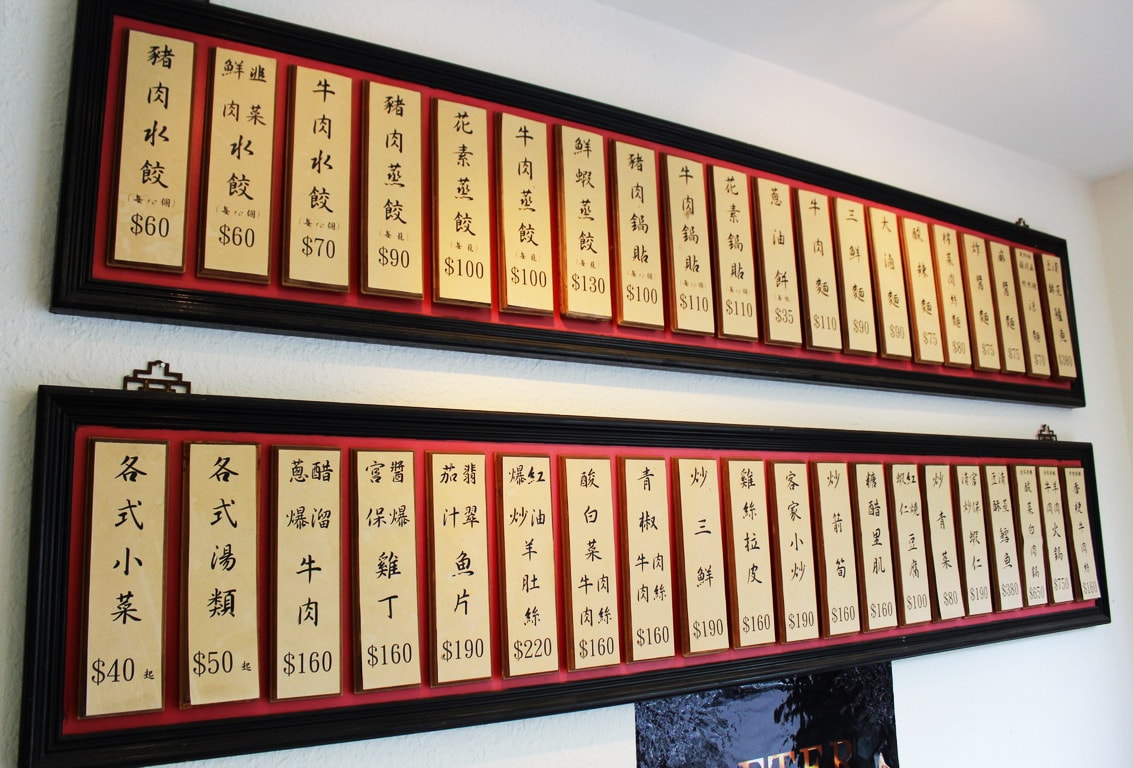 豬肉水餃(每10個)$60
鮮肉韭菜水餃(每10個)$60
牛肉水餃(每10個)$70
豬肉蒸餃(每籠)$90
花素蒸餃(每籠)$100
牛肉蒸餃(每籠)$100
鮮蝦蒸餃(每籠)$130
豬肉鍋貼(每10個)$100
牛肉鍋貼(每10個)$110
花素鍋貼(每10個)$110
蔥油餅$35
牛肉麵$110
三鮮麵$90
大滷麵$90
酸辣麵$75
榨菜肉絲麵$80
炸醬麵$75
麻醬麵$75
$70
$380
各式小菜$40起
各式湯類$50起
醋溜蔥爆牛肉$160
醬爆宮保雞丁$160
翡翠茄汁魚片$190
紅油爆炒羊肚絲$220
酸白菜牛肉肉絲$160
青椒牛肉肉絲$160
炒三鮮$190
雞絲拉皮$160
客家小炒$190
炒箭筍$160
糖醋里肌$160
紅燒蝦仁豆腐$100
炒青菜$80
宮保清炒蝦仁$190
清蒸豆酥鱈魚$380
酸菜白肉鍋$650
羊肉牛肉火鍋$750
香梗牛肉絲$160
ETER